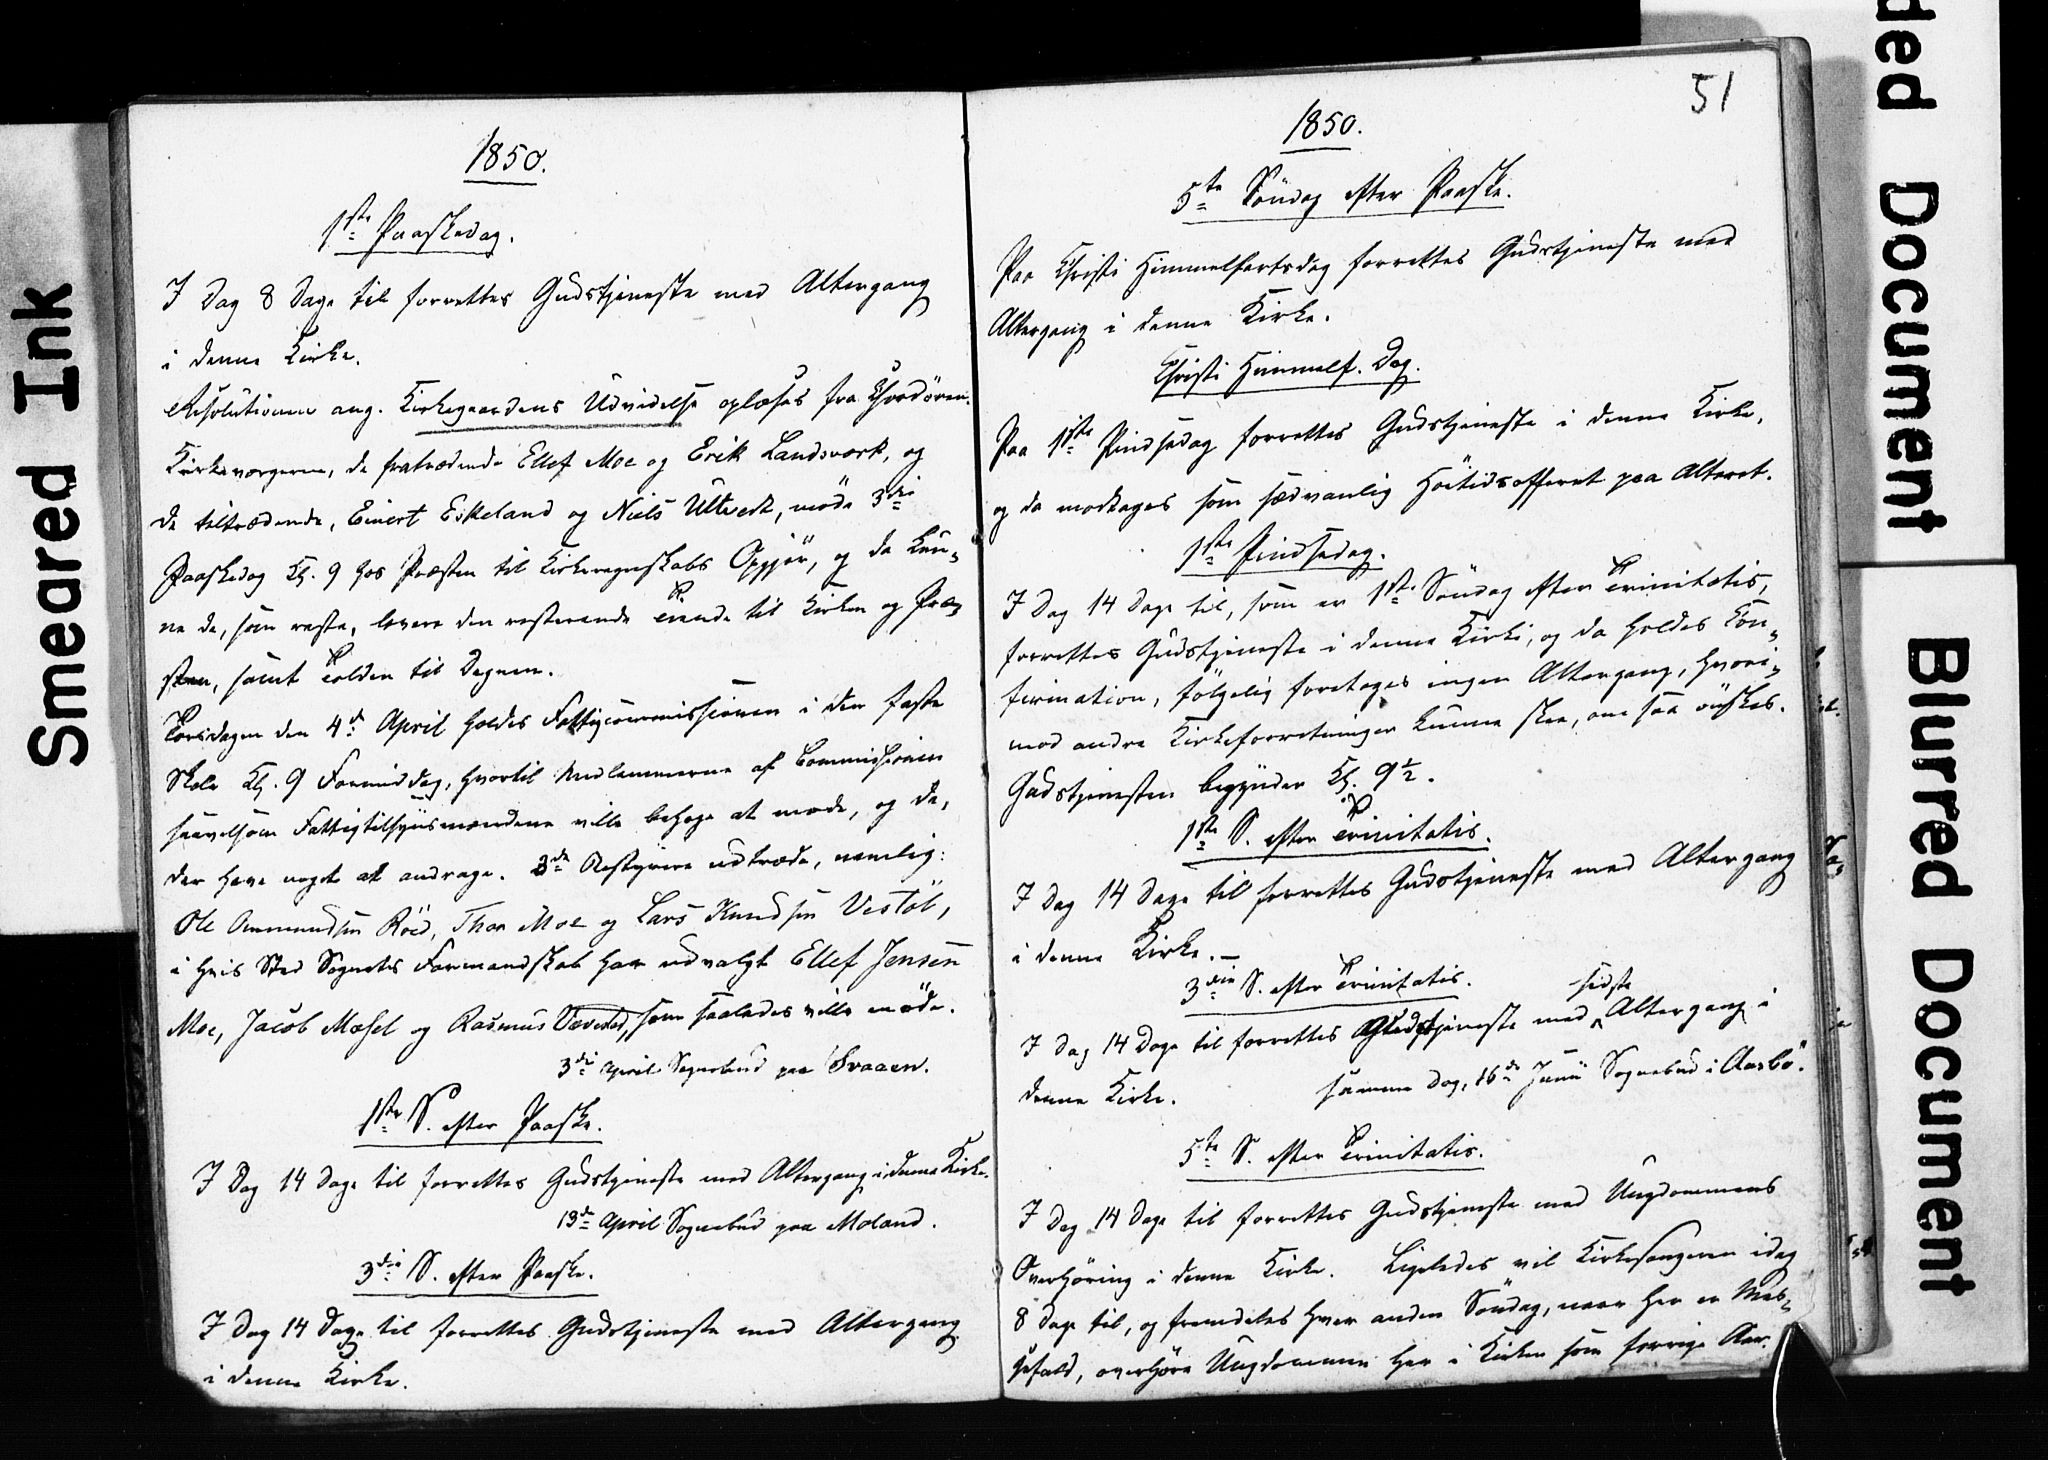 1850.
1ste Paaskedag.
I Dag 8 Dage til forrettes Gudstjeneste med Altergang
i denne Kirke.
Resolutionen ang. Kirkegaardens Udvidelse oplæses fra Chordören.
Kirkeværgerne, de fratrædende Ellef Moe og Erik Landsværk, og
de tiltrædende, Einert Eskeland og Niels Ultvedt, möde 3die
Paaskedag Kl. 9 hos Præsten til Kirkeregnskabs Opgjör, og da kun-
ne de, som reste, levere den resterende Tiende til Kirken og Præ-
sten, samt Tolden til Degnen.
Torsdagen den 4de April holdes Fattigcommissionen i den faste
Skole Kl. 9 Formiddag, hvortil Medlemmerne af Commissionen
saavelsom Fattigtilsynsmændene ville behage at møde, og de,
der have noget at andrage. 3de Bestyrere udtræde, nemlig:
Ole Ammundsen Röed, Thor Moe og Lars Knudsen Vestöl,
i hvis Sted Sognets Formandskab har udvalgt Ellef Jensen
Moe, Jacob Mæsel og Rasmus Vævestad, som saaledes ville møde.
3die April Sognebud paa Svaaen.
1ste S. efter Paaske.
I Dag 14 Dage til forrettes Gudstjeneste med Altergang i denne Kirke.
13de April Sognebud paa Moland.
3die S. efter Paaske.
I Dag 14 Dage til forrettes Gudstjeneste med Altergang
i denne Kirke.
51
1850.
5te Söndag efter Paaske.
Paa Christi Himmelfartsdag forrettes Gudstjeneste med
Altergang i denne Kirke.
Christi Himmelf. Dag.
Paa 1ste Pindsedag forrettes Gudstjeneste i denne Kirke,
og da modtages som sædvanlig Höitidsofferet paa Alteret.
1ste Pindsedag.
I Dag 14 Dage til, som er 1ste Söndag efter Trinitatis,
forrettes Gudstjeneste i denne Kirke, og da holdes Con-
firmation, fölgelig foretages ingen Altergang, hvori-
mod andre Kirkeforretninger kunne skee, om saa önskes.
Gudstjenesten begynder Kl. 9 1/2.
1ste S. efter Trinitatis.
I Dag 14 Dage til forrettes Gudstjeneste med Altergang
i denne Kirke.
3die S. efter Trinitatis.
sidste
I Dag 14 Dage til forrettes Gudstjeneste med Altergang i
denne Kirke. samme Dag, 16de Juni Sognebud i Aasbö.
5te S. efter Trinitatis.
I Dag 14 Dage til forrettes Gudstjeneste med Ungdommens
Overhöring i denne Kirke. Ligeledes vil Kirkesangeren idag
8 Dage til, og fremdeles hver anden Söndag, naar her er Mes-
sefald, overhöre Ungdommen her i Kirken som forrige Aar.
Smeared Ink
ded Document
Blurred Document